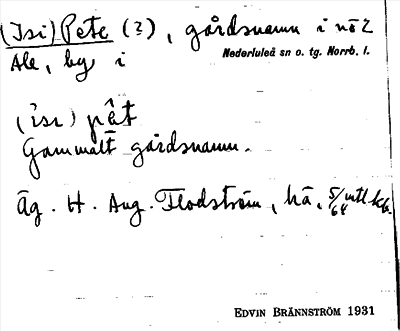 (Isi) Pete (?), gårdsnamn i nö 2
Ale, by i Nederluleå sn o. tg. Norrb. l.
(ìsi) pêt
Gammalt gårdsnamn.
Äg. H. Aug. Flodström, hä, 5/64 mtl kb.
EDVIN BRÄNNSTRÖM 1931